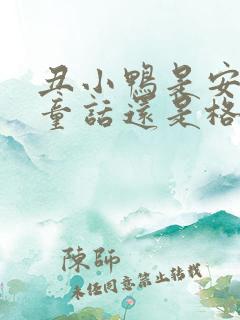 丑小鴨是安
童話還是格
陳師
未经同意禁止转载